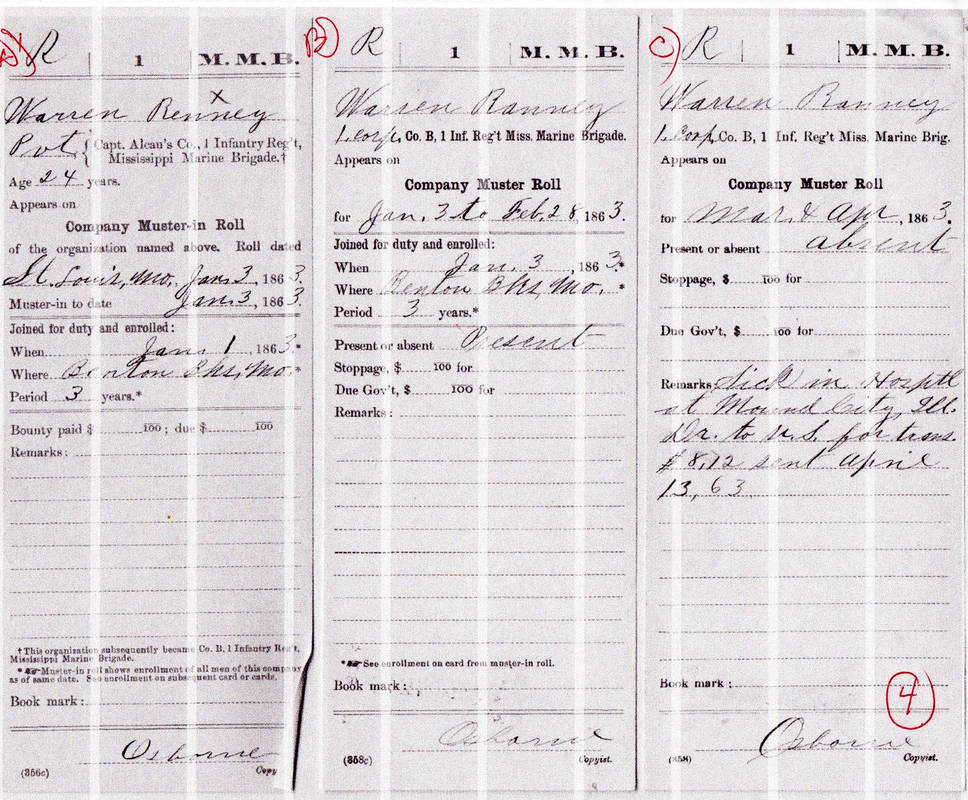 A) R | 1 | M. M. B.
x
Warren Renney
Pvt. { Capt. Alcan's Co., 1 Infantry Reg't,
Mississippi Marine Brigade.†
Age 24 years.
Appears on
Company Muster-in Roll
of the organization named above. Roll dated
St. Louis, Mo., Jan. 3, 1863.
Muster-in to date Jan. 3, 1863.
Joined for duty and enrolled:
When Jan. 1, 1863.*
Where Benton Bks, Mo.*
Period 3 years.*
Bounty paid $ 100; due $ 100
Remarks:
†This organization subsequently became Co. B, 1 Infantry Reg't,
Mississippi Marine Brigade.
*☞ Muster-in roll shows enrollment of all men of this company
as of same date. See enrollment on subsequent card or cards.
Book mark:
Osborne
(356c) Copy
B) R | 1 | M. M. B.
Warren Ranney
1. Corp., Co. B, 1 Inf. Reg't Miss. Marine Brigade.
Appears on
Company Muster Roll
for Jan. 3 to Feb. 28, 1863.
Joined for duty and enrolled:
When Jan. 3, 1863.*
Where Benton Bks, Mo. *
Period 3 years.*
Present or absent Present
Stoppage, $ 100 for
Due Gov't, $ 100 for
Remarks:
*☞ See enrollment on card from muster-in roll.
Book mark:
Osborne
(358c) Copyist.
C) R | 1 | M. M. B.
Warren Ranney
1. Corp, Co. B, 1 Inf. Reg't Miss. Marine Brig.
Appears on
Company Muster Roll
for Mar. & Apr, 1863.
Present or absent absent
Stoppage, $ 100 for
Due Gov't, $ 100 for
Remarks Sick in Hosptl
at Mound City, Ill.
Dr. to U.S. for trans.
$8.12 sent April
13, 63
Book mark:
4
Osborne
(358) Copyist.